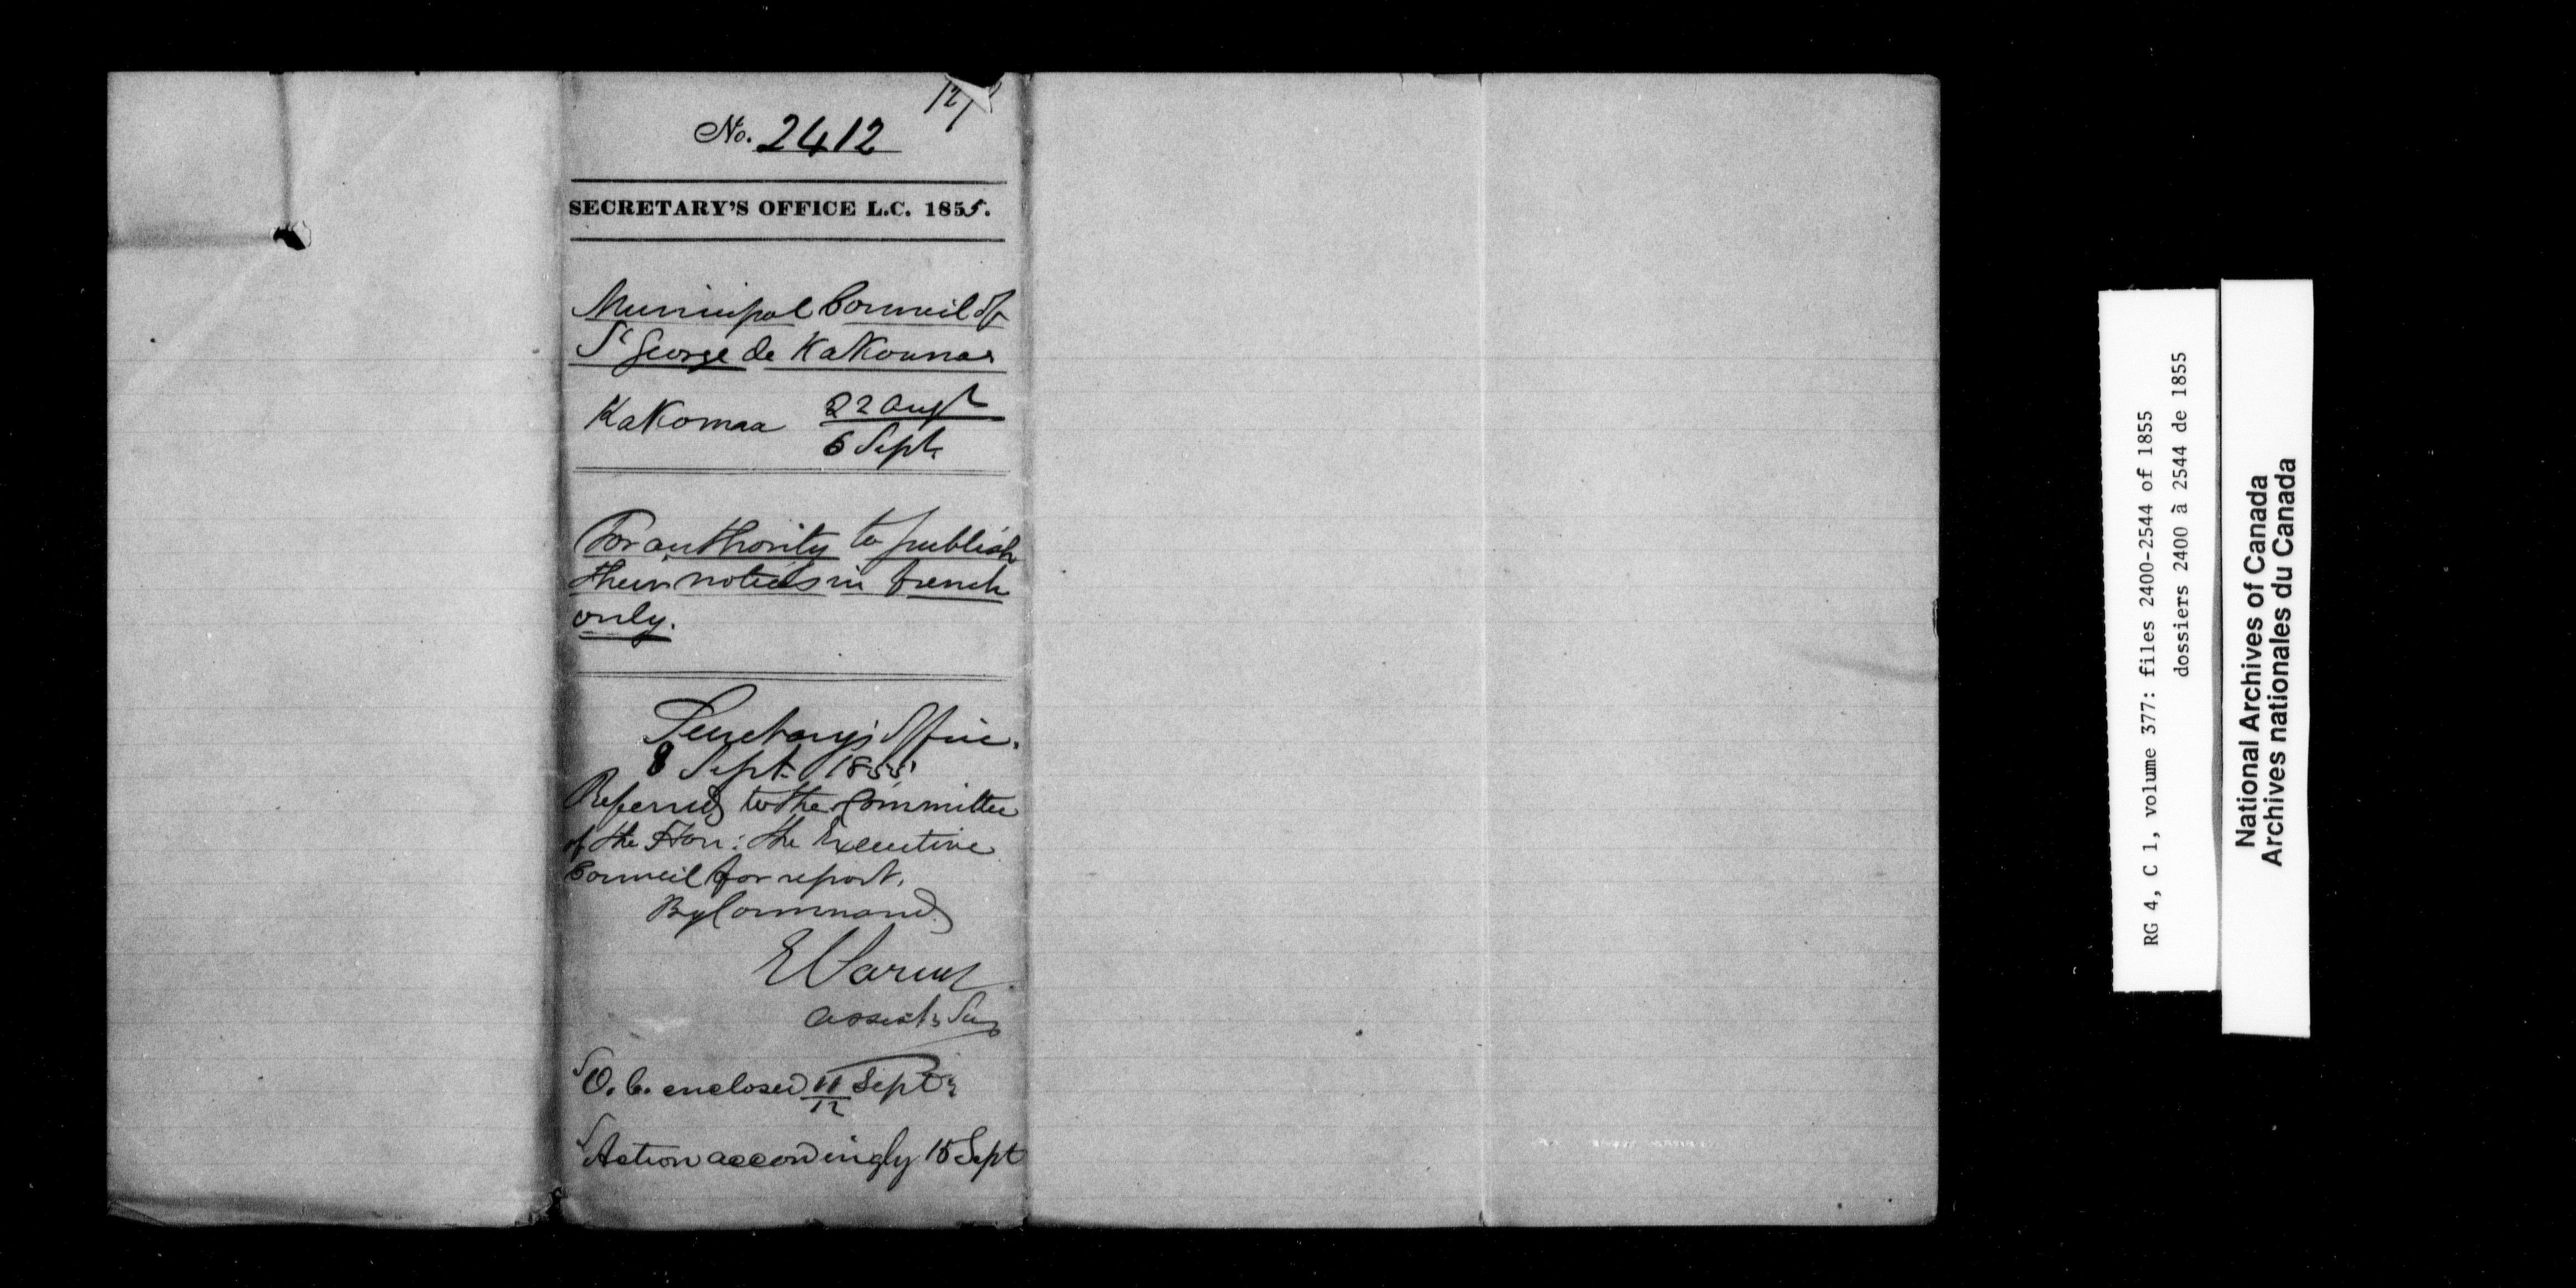 No. 2412
SECRETARY'S OFFICE L.C. 1855.
Municipal Council of
St George de KaKounas
KaKomaa 22 Augt
6 Sept.
For authority to publish
their notices in french
only.
Secretary's Office.
8 Sept. 1855
Referred to the Committee
of the Hon: the Executive
Council for report.
By Command
E Parent
Assist. Secy
O. C. enclosed 11/12 Sept.
Action accordingly 15 Sept
RG 4, C 1, volume 377: files 2400-2544 of 1855
dossiers 2400 à 2544 de 1855
National Archives of Canada
Archives nationales du Canada